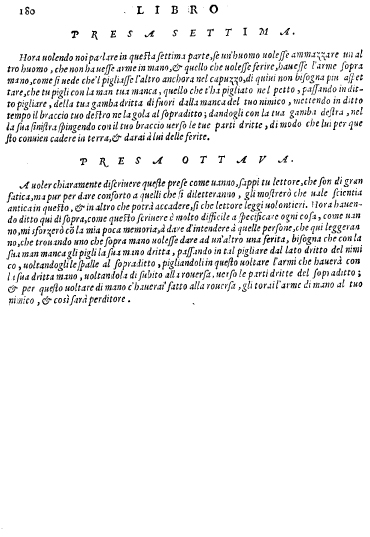 180 LIBRO
PRESA SETTIMA.
Hora uolendo noi parlare in questa settima parte, se un'huomo uolesse ammazzare un al
tro huomo, che non hauesse arme in mano, & quello che uolesse ferire, hauesse l'arme sopra
mano, come si uede che'l pigliasse l'altro anchora nel capuzzo, di quiui non bisogna piu aspet
tare, che tu pigli con la man tua manca, quello che t'ha pigliato nel petto, passando in dit-
to pigliare, della tua gamba dritta di fuori dalla manca del tuo nimico, mettendo in ditto
tempo il braccio tuo destro ne la gola al sopraditto; dandogli con la tua gamba destra, nel
la sua sinistra spingendo con il tuo braccio uerso le tue parti dritte, di modo che lui per que
sto conuien cadere in terra, & darai à lui delle ferite.
PRESA OTTAVA.
A uoler chiaramente discriuere queste prese come uanno, sappi tu lettore, che son di gran
fatica, ma pur per dare conforto a quelli che si diletteranno, gli mostrerò che uale scientia
antica in questo, & in altro che potrà accadere, si che lettore leggi uolontieri. Hora hauen-
do ditto qui di sopra, come questo scriuere è molto difficile a specificare ogni cosa, come uan
no, mi sforzerò cō la mia poca memoria, à dare d'intendere à quelle persone, che qui leggeran
no, che trouando uno che sopra mano uolesse dare ad un'altro una ferita, bisogna che con la
sua man manca gli pigli la sua mano dritta, passando in tal pigliare dal lato dritto del nimi
co, uoltandogli le spalle al sopraditto, pigliandoli in questo uoltare l'armi che hauerà con
la sua dritta mano, uoltandola di subito alla rouersa, uerso le parti dritte del sopraditto;
& per questo uoltare di mano c'hauerai fatto alla rouersa, gli torai l'arme di mano al tuo
nimico, & così sarà perditore.